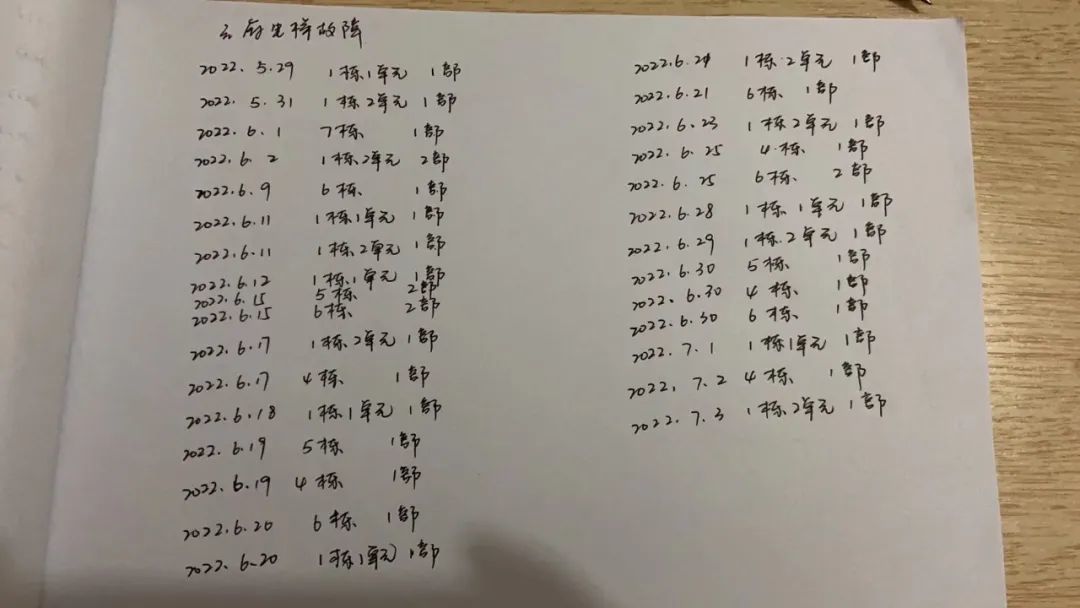 云府电梯故障
2022.5.29 1栋1单元 1部
2022.5.31 1栋2单元 1部
2022.6.1 7栋 1部
2022.6.2 1栋2单元 2部
2022.6.9 6栋 1部
2022.6.11 1栋1单元 1部
2022.6.11 1栋2单元 1部
2022.6.12 1栋1单元 1部
2022.6.15 5栋 2部
2022.6.15 6栋 2部
2022.6.17 1栋2单元 1部
2022.6.17 4栋 1部
2022.6.18 1栋1单元 1部
2022.6.19 5栋 1部
2022.6.19 4栋 1部
2022.6.20 6栋 1部
2022.6.20 1栋1单元 1部
2022.6.21 1栋2单元 1部
2022.6.21 6栋 1部
2022.6.23 1栋2单元 1部
2022.6.25 4栋 1部
2022.6.25 6栋 2部
2022.6.28 1栋1单元 1部
2022.6.29 1栋2单元 1部
2022.6.30 5栋 1部
2022.6.30 4栋 1部
2022.6.30 6栋 1部
2022.7.1 1栋1单元 1部
2022.7.2 4栋 1部
2022.7.3 1栋2单元 1部